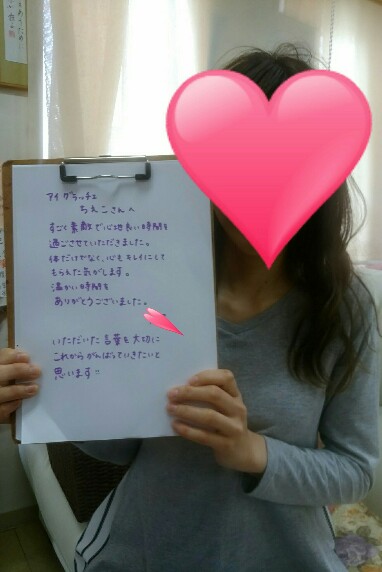 アイグラッチェ
ちえこさんへ
すごく素敵で心地良い時間を
過ごさせていただきました。
体だけでなく、心もキレイにして
もらえた気がします。
温かい時間を
ありがとうございました。
いただいた言葉を大切に
これからがんばっていきたいと
思います